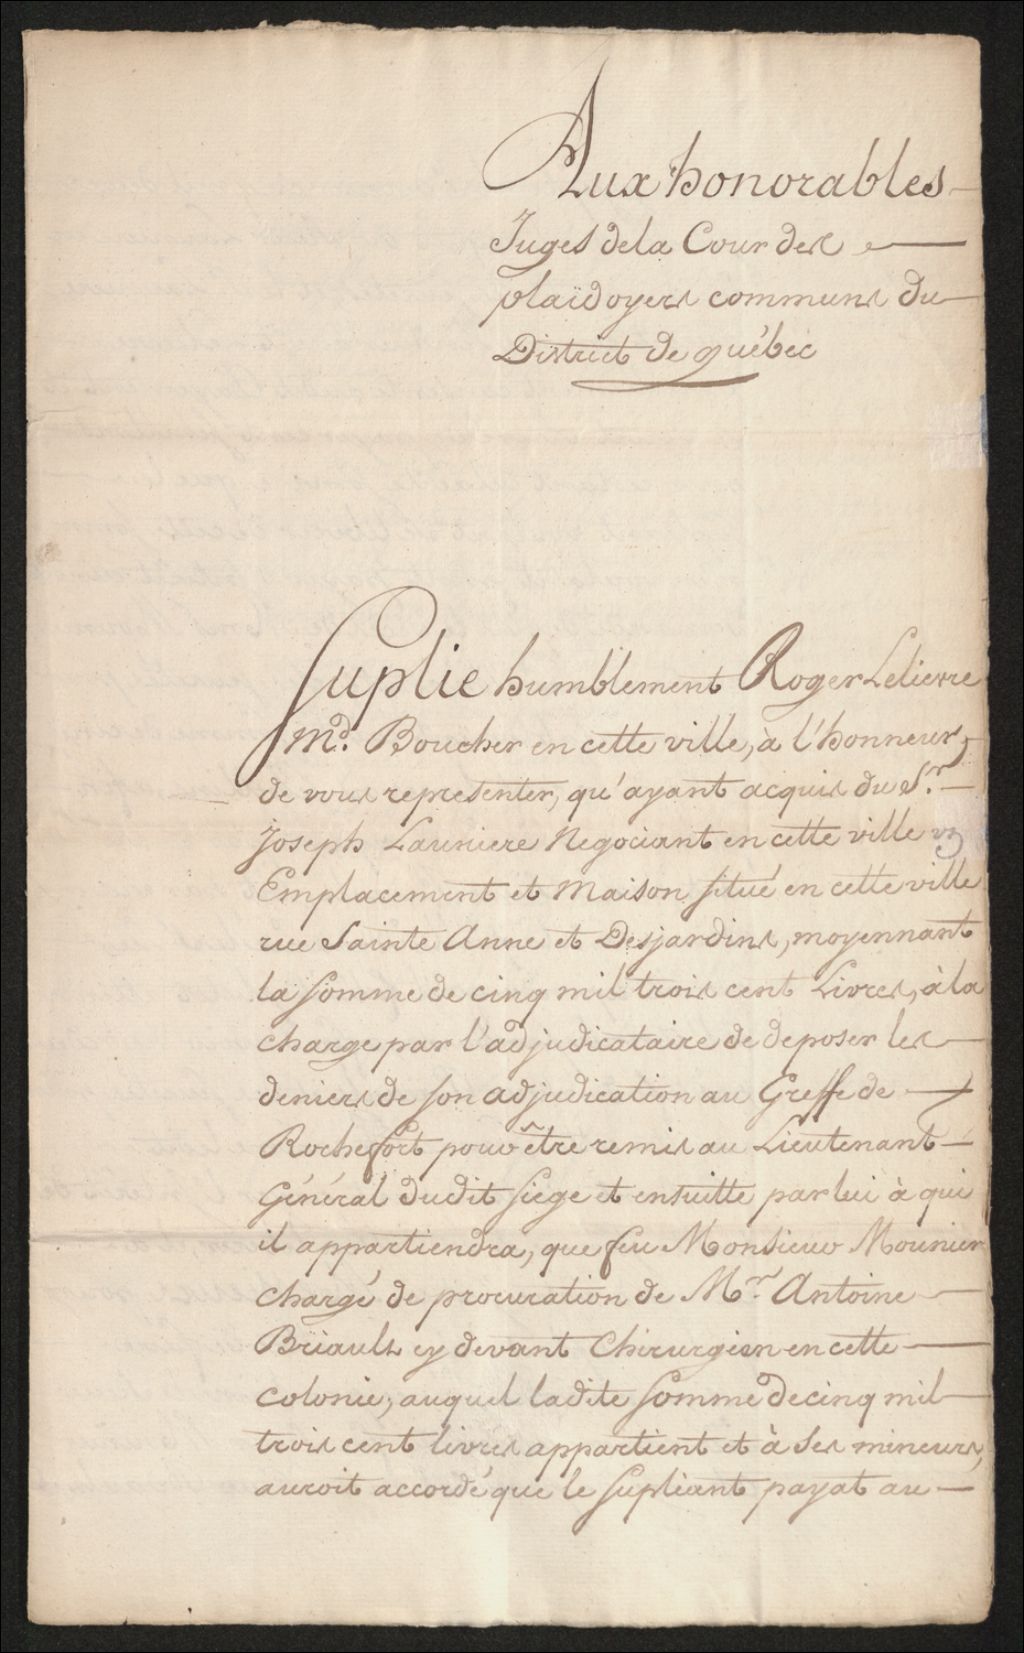 Aux honorables
Juges dela Cour des
plaidoyers communs du
District de québec
Suplie humblement Roger Lelievre
Md. Boucher en cette ville, à l'honneur
de vous representer, qu'ayant acquis du Sr.
Joseph Launiere Negociant en cette ville un
Emplacement et Maison situé en cette ville
rue Sainte Anne et Desjardins, moyennant
la somme de cinq mil trois cent Livres, à la
charge par l'adjudicataire de deposer les
deniers de son adjudication au Greffe de
Rochefort pour être remis au Lieutenant
Général dudit siége et ensuitte par lui à qui
il appartiendra, que feu Monsieur Mounier
chargé de procuration de Mr. Antoine
Briault cy devant Chirurgien en cette
colonie, auquel ladite somme de cinq mil
trois cent livres appartient et à ses mineurs,
auroit accordé que le supliant payat au